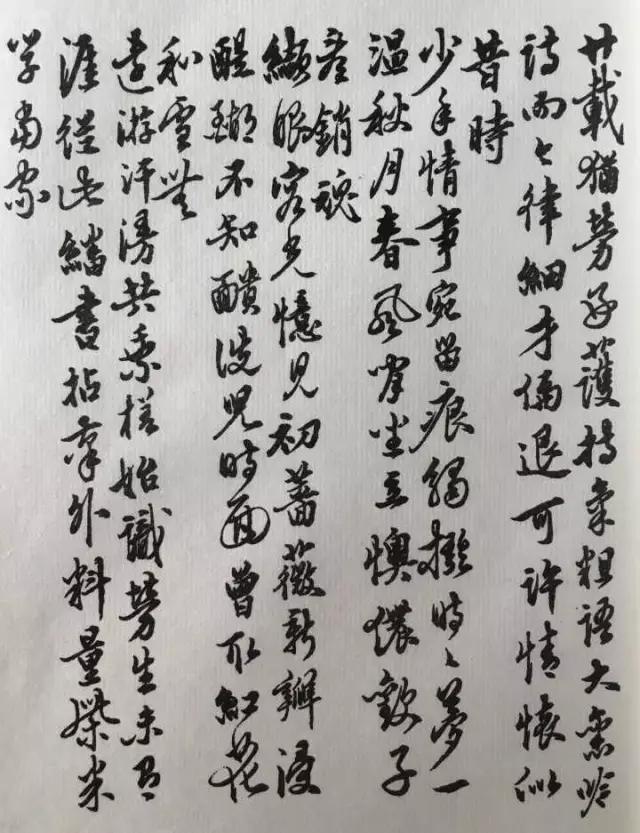 廿載猶勞好護持氣粗語大舊吟
詩而今律細才偏退可許情懷似
昔時
少年情事宛留痕觸撥時時夢一
溫秋月春風閒坐立懊儂歡子
看銷魂
纈眼容光憶見初薔薇新瓣浸
醍醐不知靧洗兒時面曾取紅花
和雪無
遠游汗漫共乘槎始識勞生未有
涯從此繙書拈筆外料量柴米
學當家